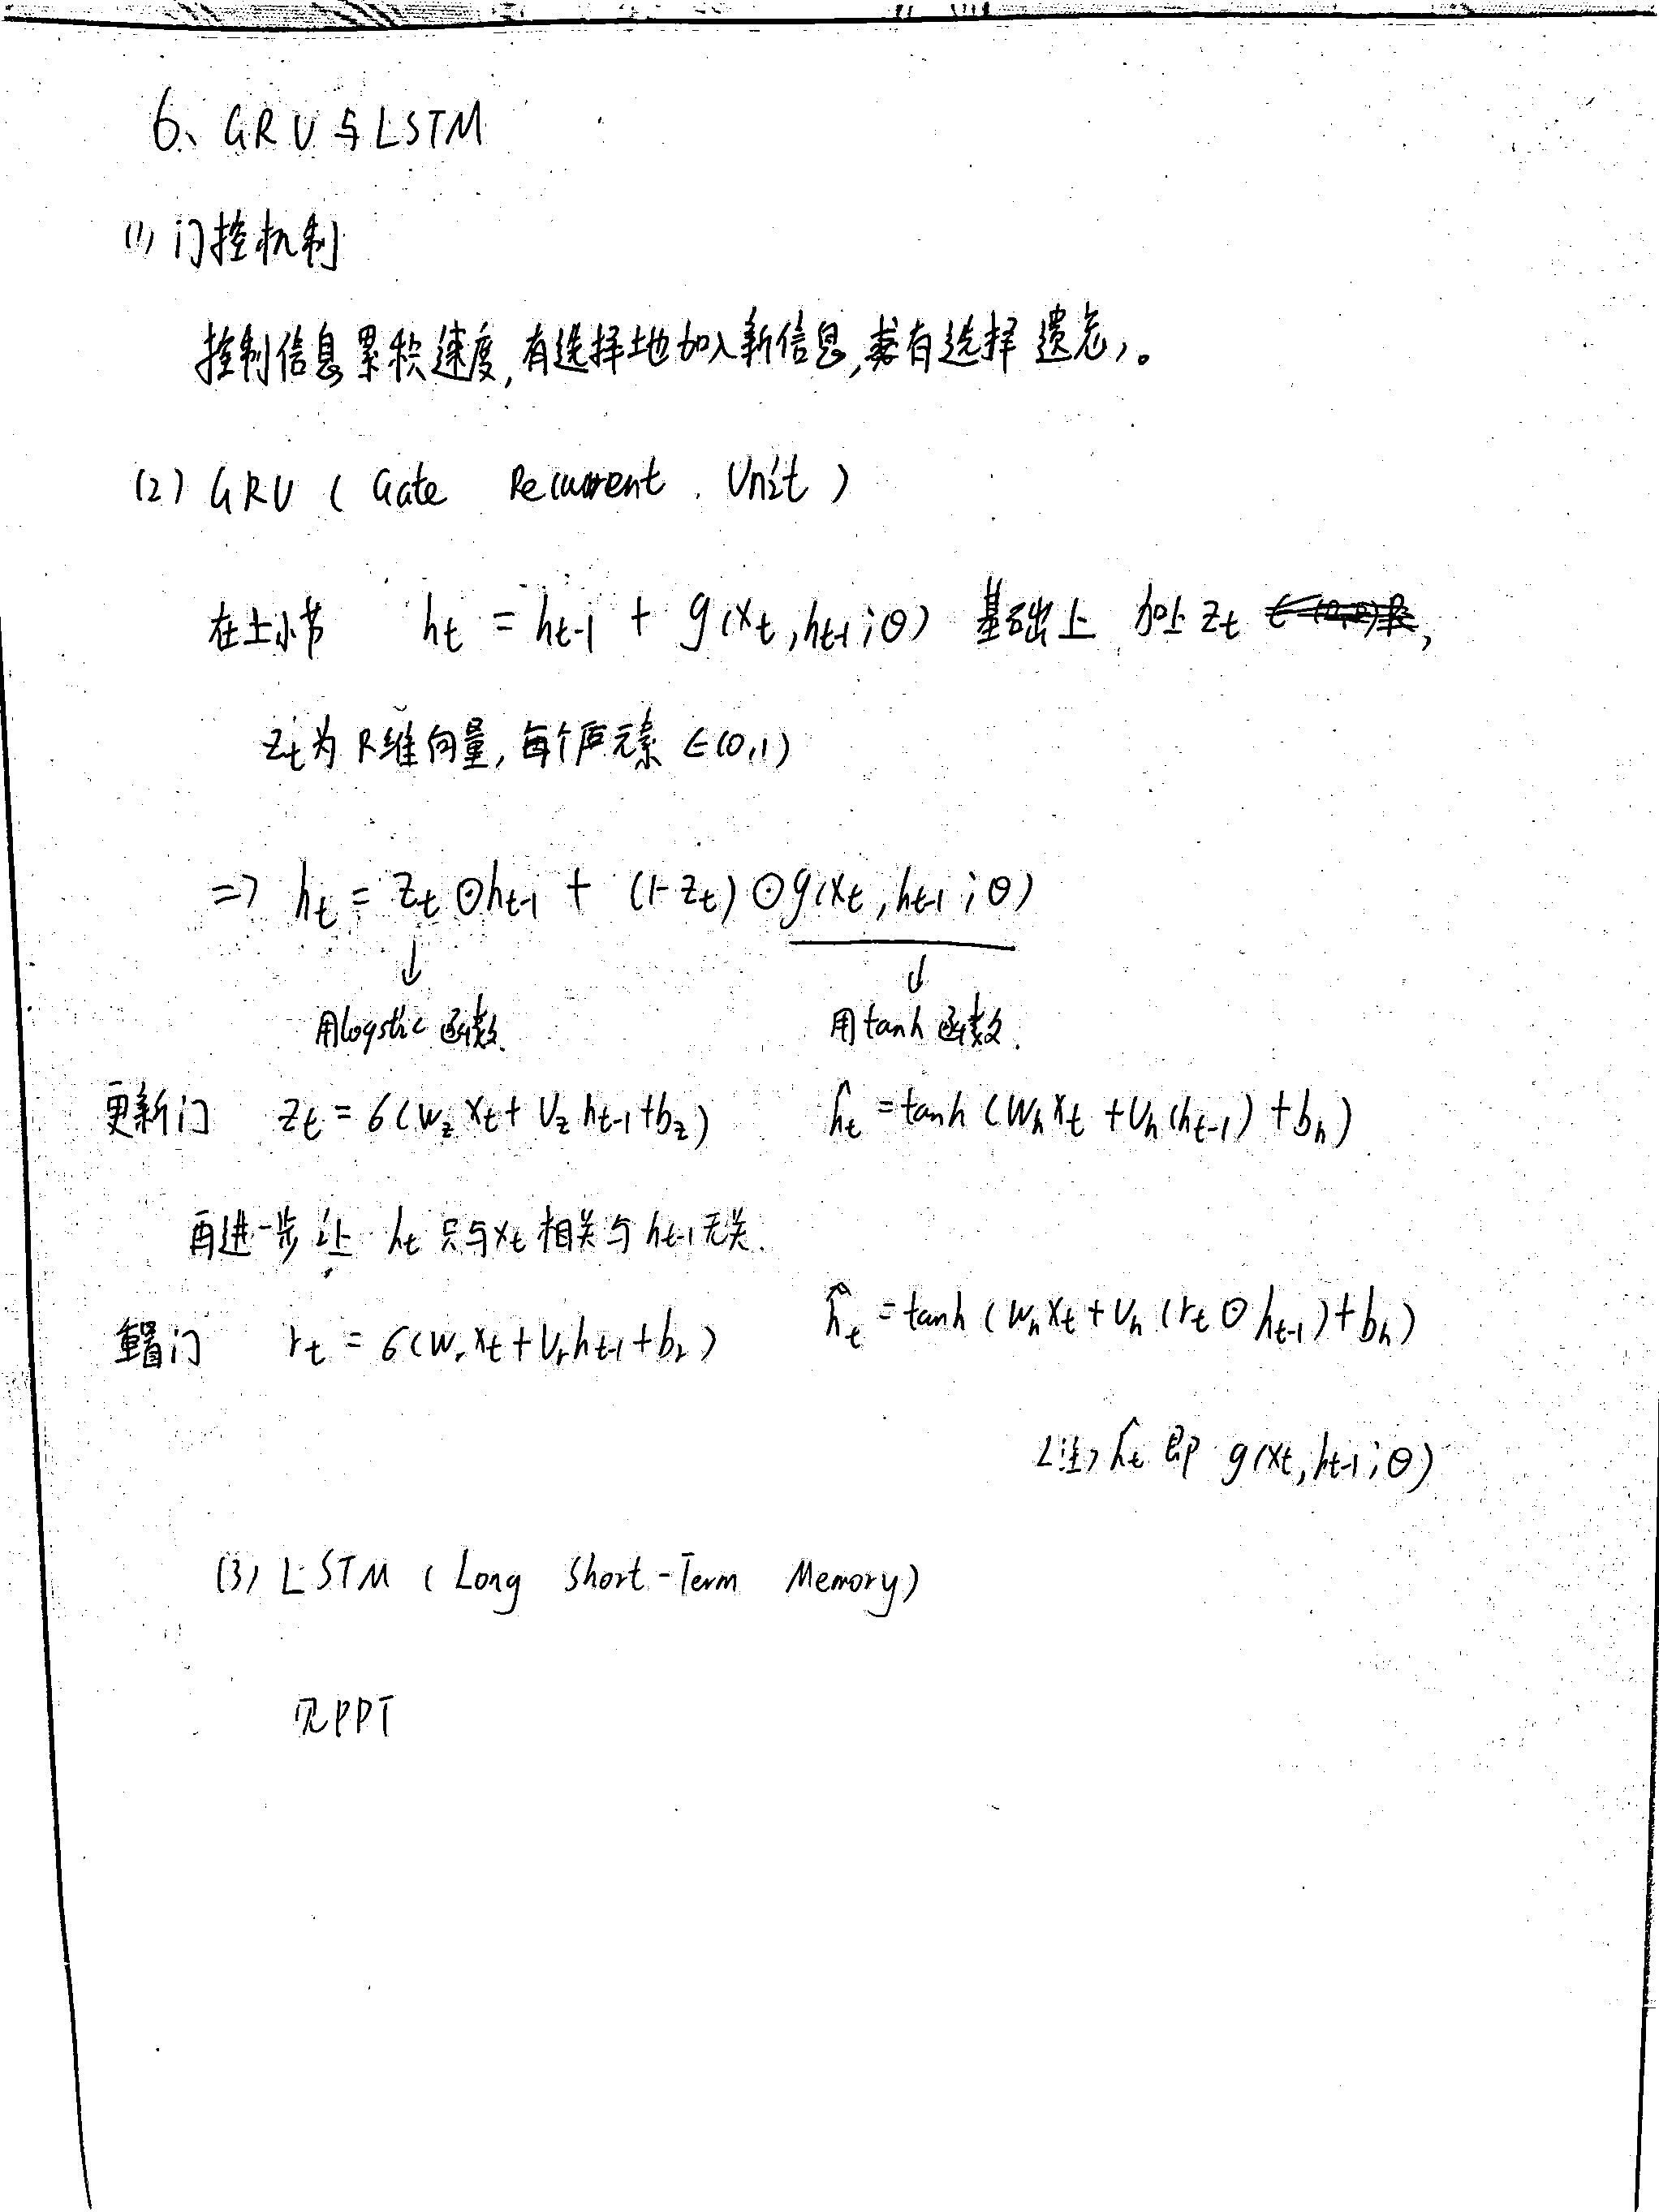 6、GRU与LSTM
(1) 门控机制
控制信息累积速度,有选择地加入新信息,有选择遗忘。
(2) GRU ( Gate Recurrent Unit )
在上小节 h_t = h_{t-1} + g(x_t, h_{t-1}; θ) 基础上 加上 z_t ,
z_t为 R维向量, 每个元素 ∈(0,1)
=> h_t = z_t ⊙ h_{t-1} + (1-z_t) ⊙ g(x_t, h_{t-1}; θ)
↓ ↓
用logstic 函数. 用tanh 函数.
更新门 z_t = σ(W_z x_t + U_z h_{t-1} + b_z) ĥ_t = tanh (W_h x_t + U_h (h_{t-1}) + b_h)
再进一步 让 h_t 只与x_t 相关与 h_{t-1}无关.
重置门 r_t = σ(W_r x_t + U_r h_{t-1} + b_r) ĥ_t = tanh (W_h x_t + U_h (r_t ⊙ h_{t-1}) + b_h)
<注> ĥ_t 即 g(x_t, h_{t-1}; θ)
(3) LSTM ( Long Short-Term Memory)
见PPT